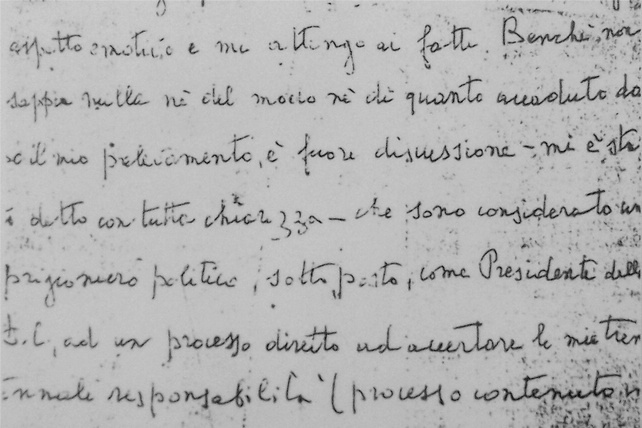 aspetto emotivo e mi attengo ai fatti. Benché non
sappia nulla nè del modo nè di quanto accaduto do
po il mio prelevamento, è fuori discussione - mi è sta
to detto con tutta chiarezza - che sono considerato un
prigioniero politico, sottoposto, come Presidente della
D.C., ad un processo diretto ad accertare le mie tren
tennali responsabilità (processo contenuto in